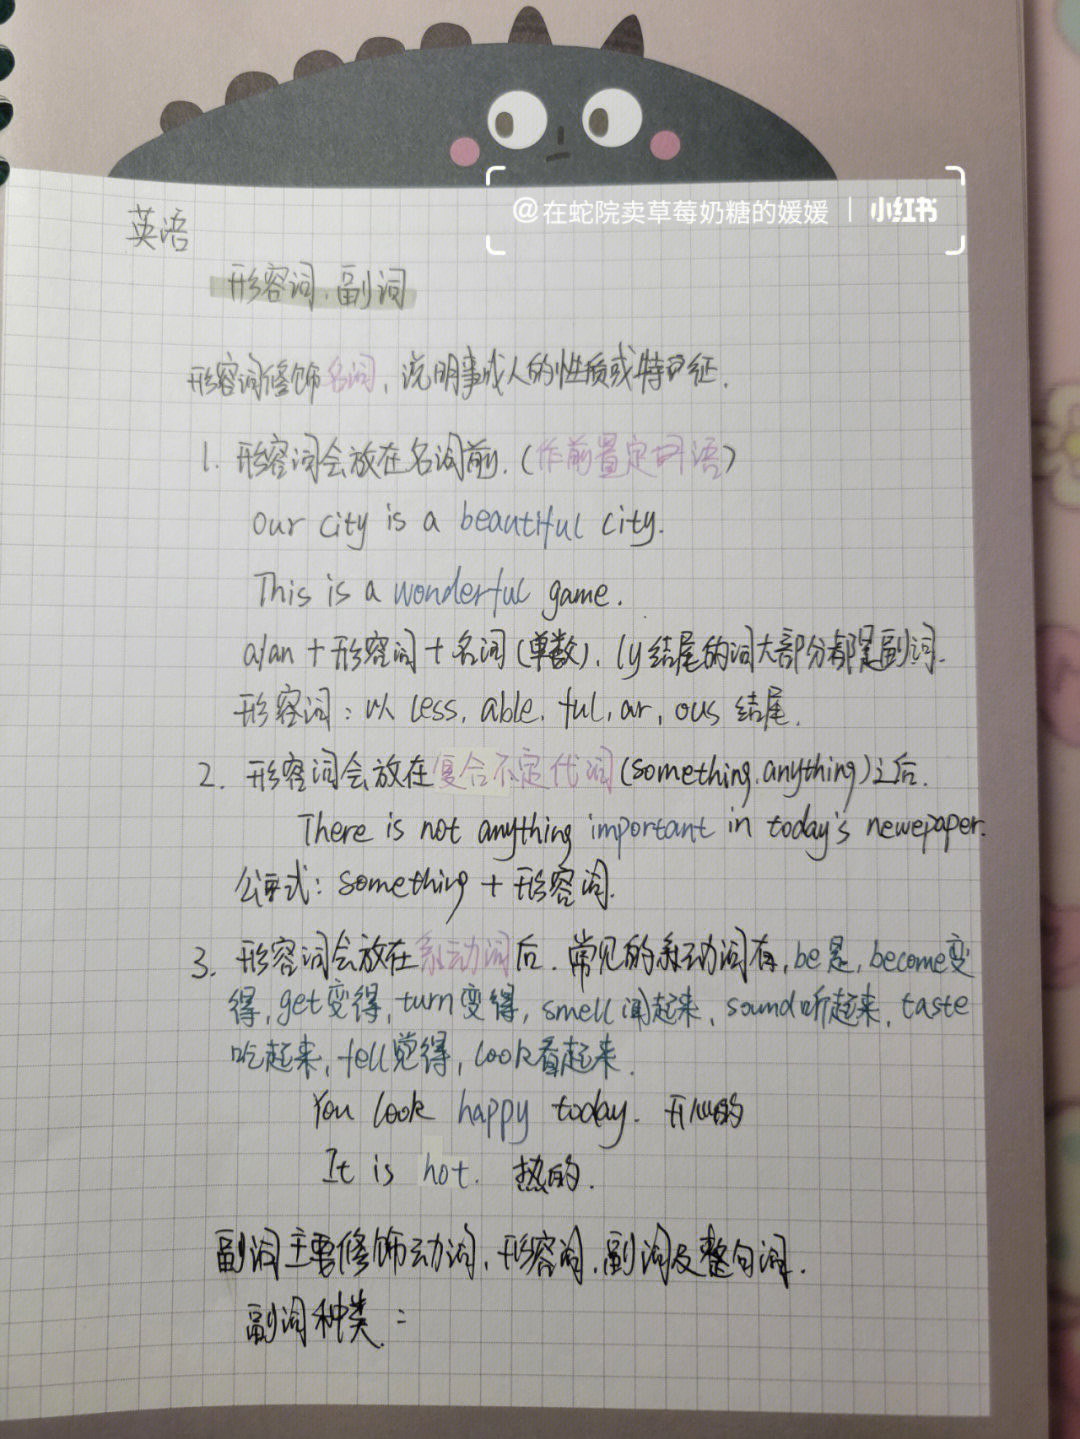 @在蛇院卖草莓奶糖的媛媛 | 小红书
英语
形容词、副词
形容词修饰名词，说明事或人的性质或特征.
1. 形容词会放在名词前.(作前置定语)
Our city is a beautiful city.
This is a wonderful game.
a/an + 形容词 + 名词(单数). ly结尾的词大部分都是副词.
形容词：以 less, able, ful, ar, ous 结尾.
2. 形容词会放在复合不定代词(something, anything)之后.
There is not anything important in today's newepaper.
公式: something + 形容词.
3. 形容词会放在系动词后. 常见的系动词有, be是, become变
得, get变得, turn变得, smell闻起来、sound听起来, taste
吃起来, fell觉得, look看起来.
You look happy today. 开心的
It is hot. 热的.
副词主要修饰动词、形容词、副词及整句词.
副词种类：